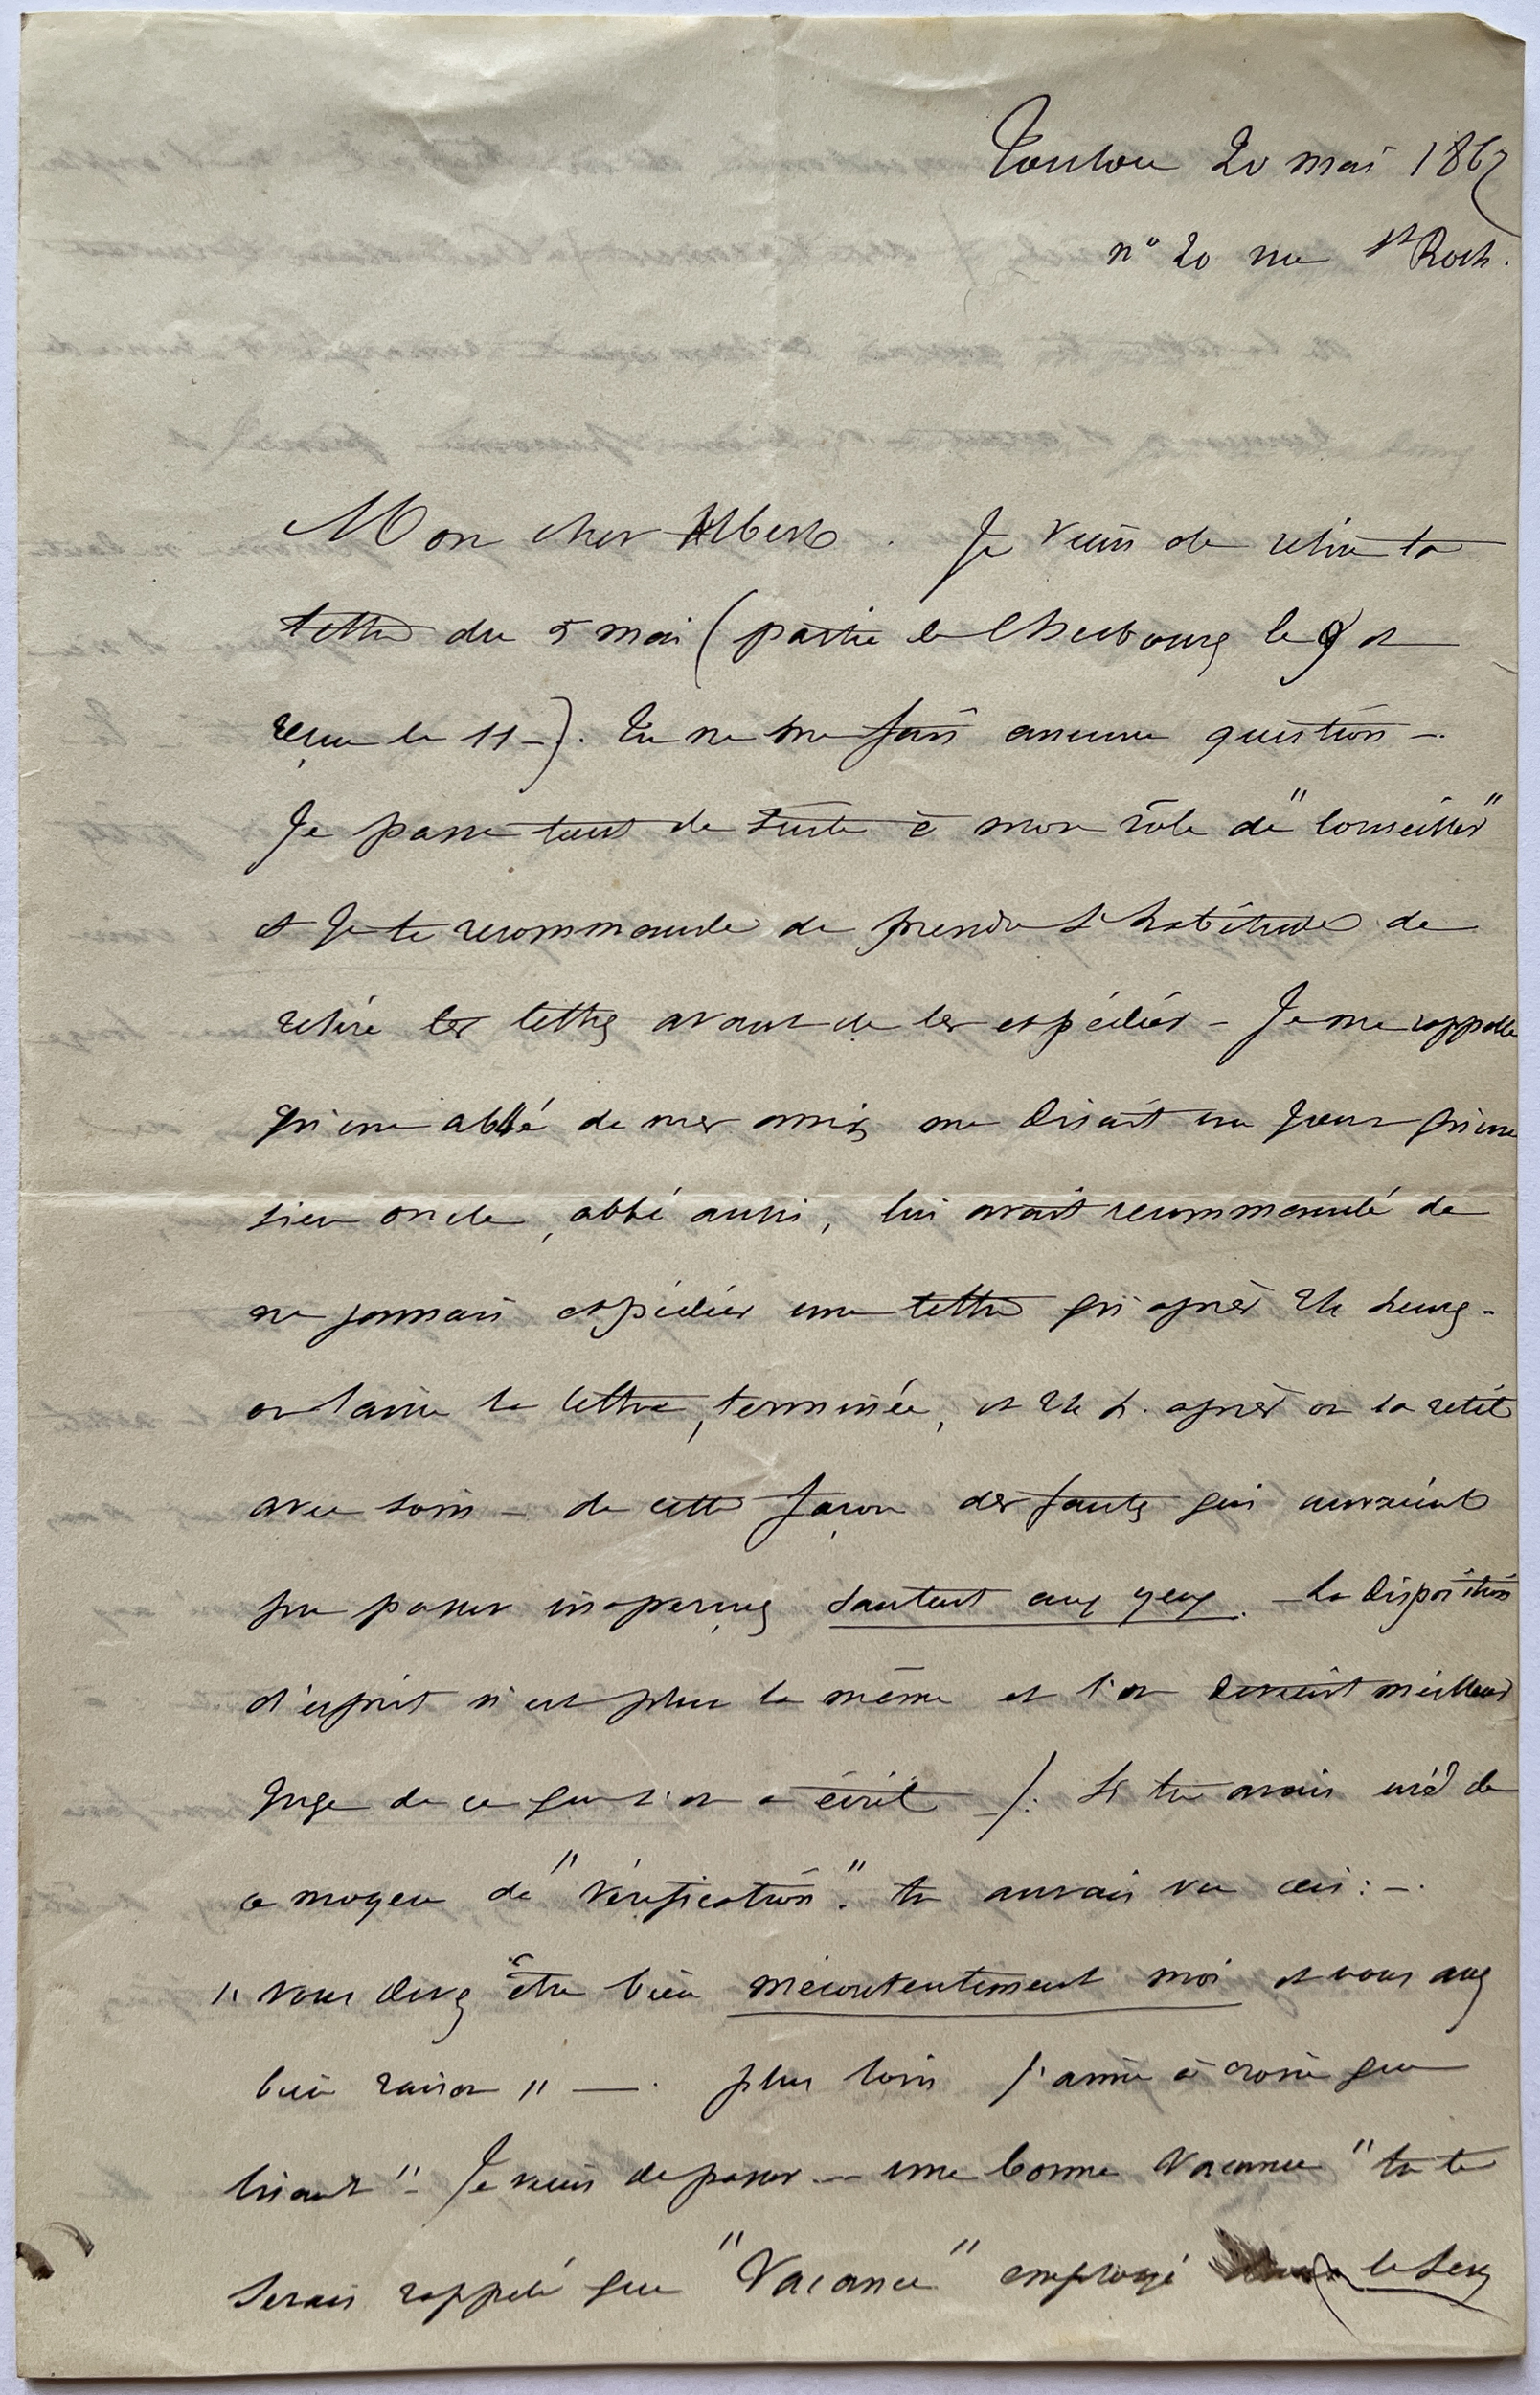 Toulon 20 mai 1867
n° 20 rue St Roch.
Mon cher Albert. Je viens de relire ta
lettre du 5 mai (partie de Cherbourg le 9 et
reçue le 11-). Tu ne me fais aucune question -.
Je passe tout de suite à mon rôle de "Conseiller"
et je te recommande de prendre l'habitude de
relire tes lettres avant de les expédier - Je me rappelle
qu'un abbé de mes amis me disait un jour qu'un
sien oncle, abbé aussi, lui avait recommandé de
ne jamais expédier une lettre qu'après 24 heures -
on laisse la lettre, terminée, et 24 h. après on la relit
avec soin - de cette façon des fautes qui auraient
pu passer inaperçues sautent aux yeux. - La disposition
d'esprit n'est plus la même et l'on devient meilleur
juge de ce que l'on a écrit -/: Si tu avais usé de
ce moyen de "vérification". tu aurais vu ceci: -.
" vous devez être bien mécontentement moi et vous avez
bien raison " —. plus loin j'arrive à croire que
lisant "- Je viens de passer -- une bonne vacance " tu te
serais rappelé que "Vacance" employé le sens